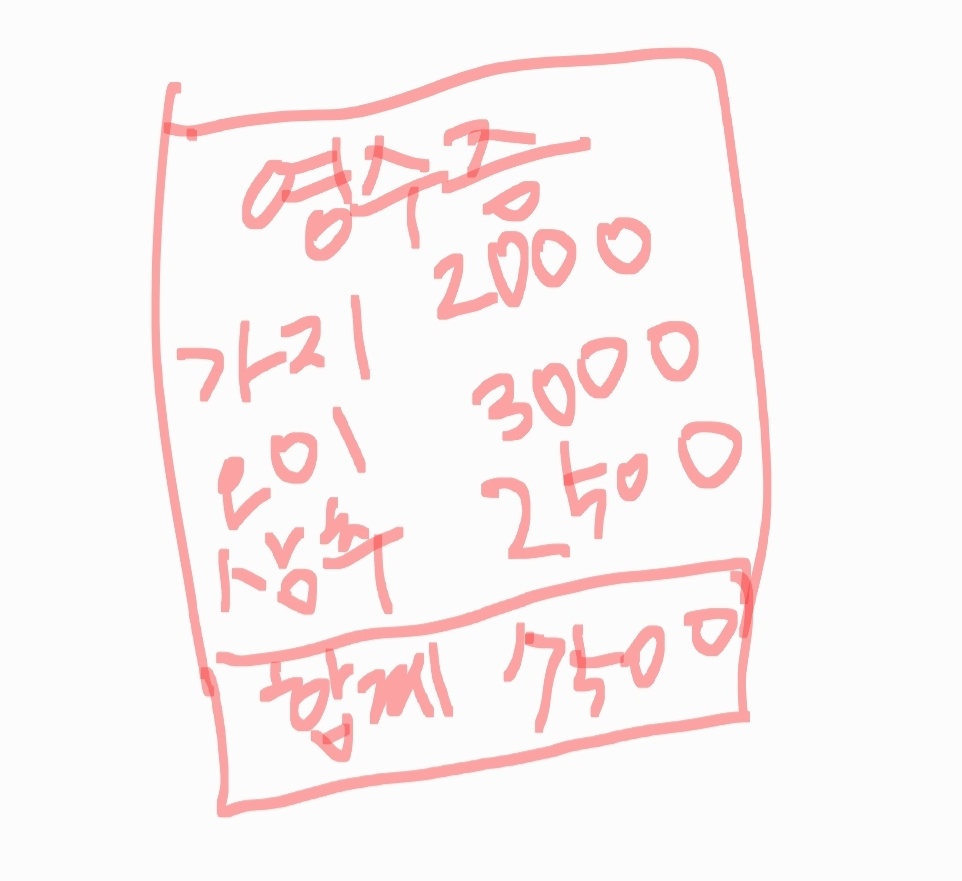 영수증
가지 2000
오이 3000
상추 2500
합계 7500